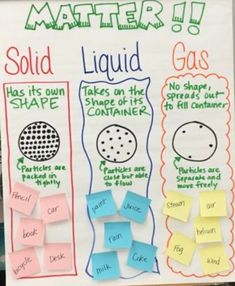 MATTER!!
Solid
Has its own
SHAPE
Particles are
packed in
tightly
Pencil
car
book
bicycle
Desk
Liquid
Takes on the
SHAPE of its
CONTAINER
Particles are
close but able
to flow
paint
Juice
rain
milk
Coke
Gas
No shape,
spreads out
to fill container
Particles are
separate and
move freely
Steam
air
helium
Fog
wind